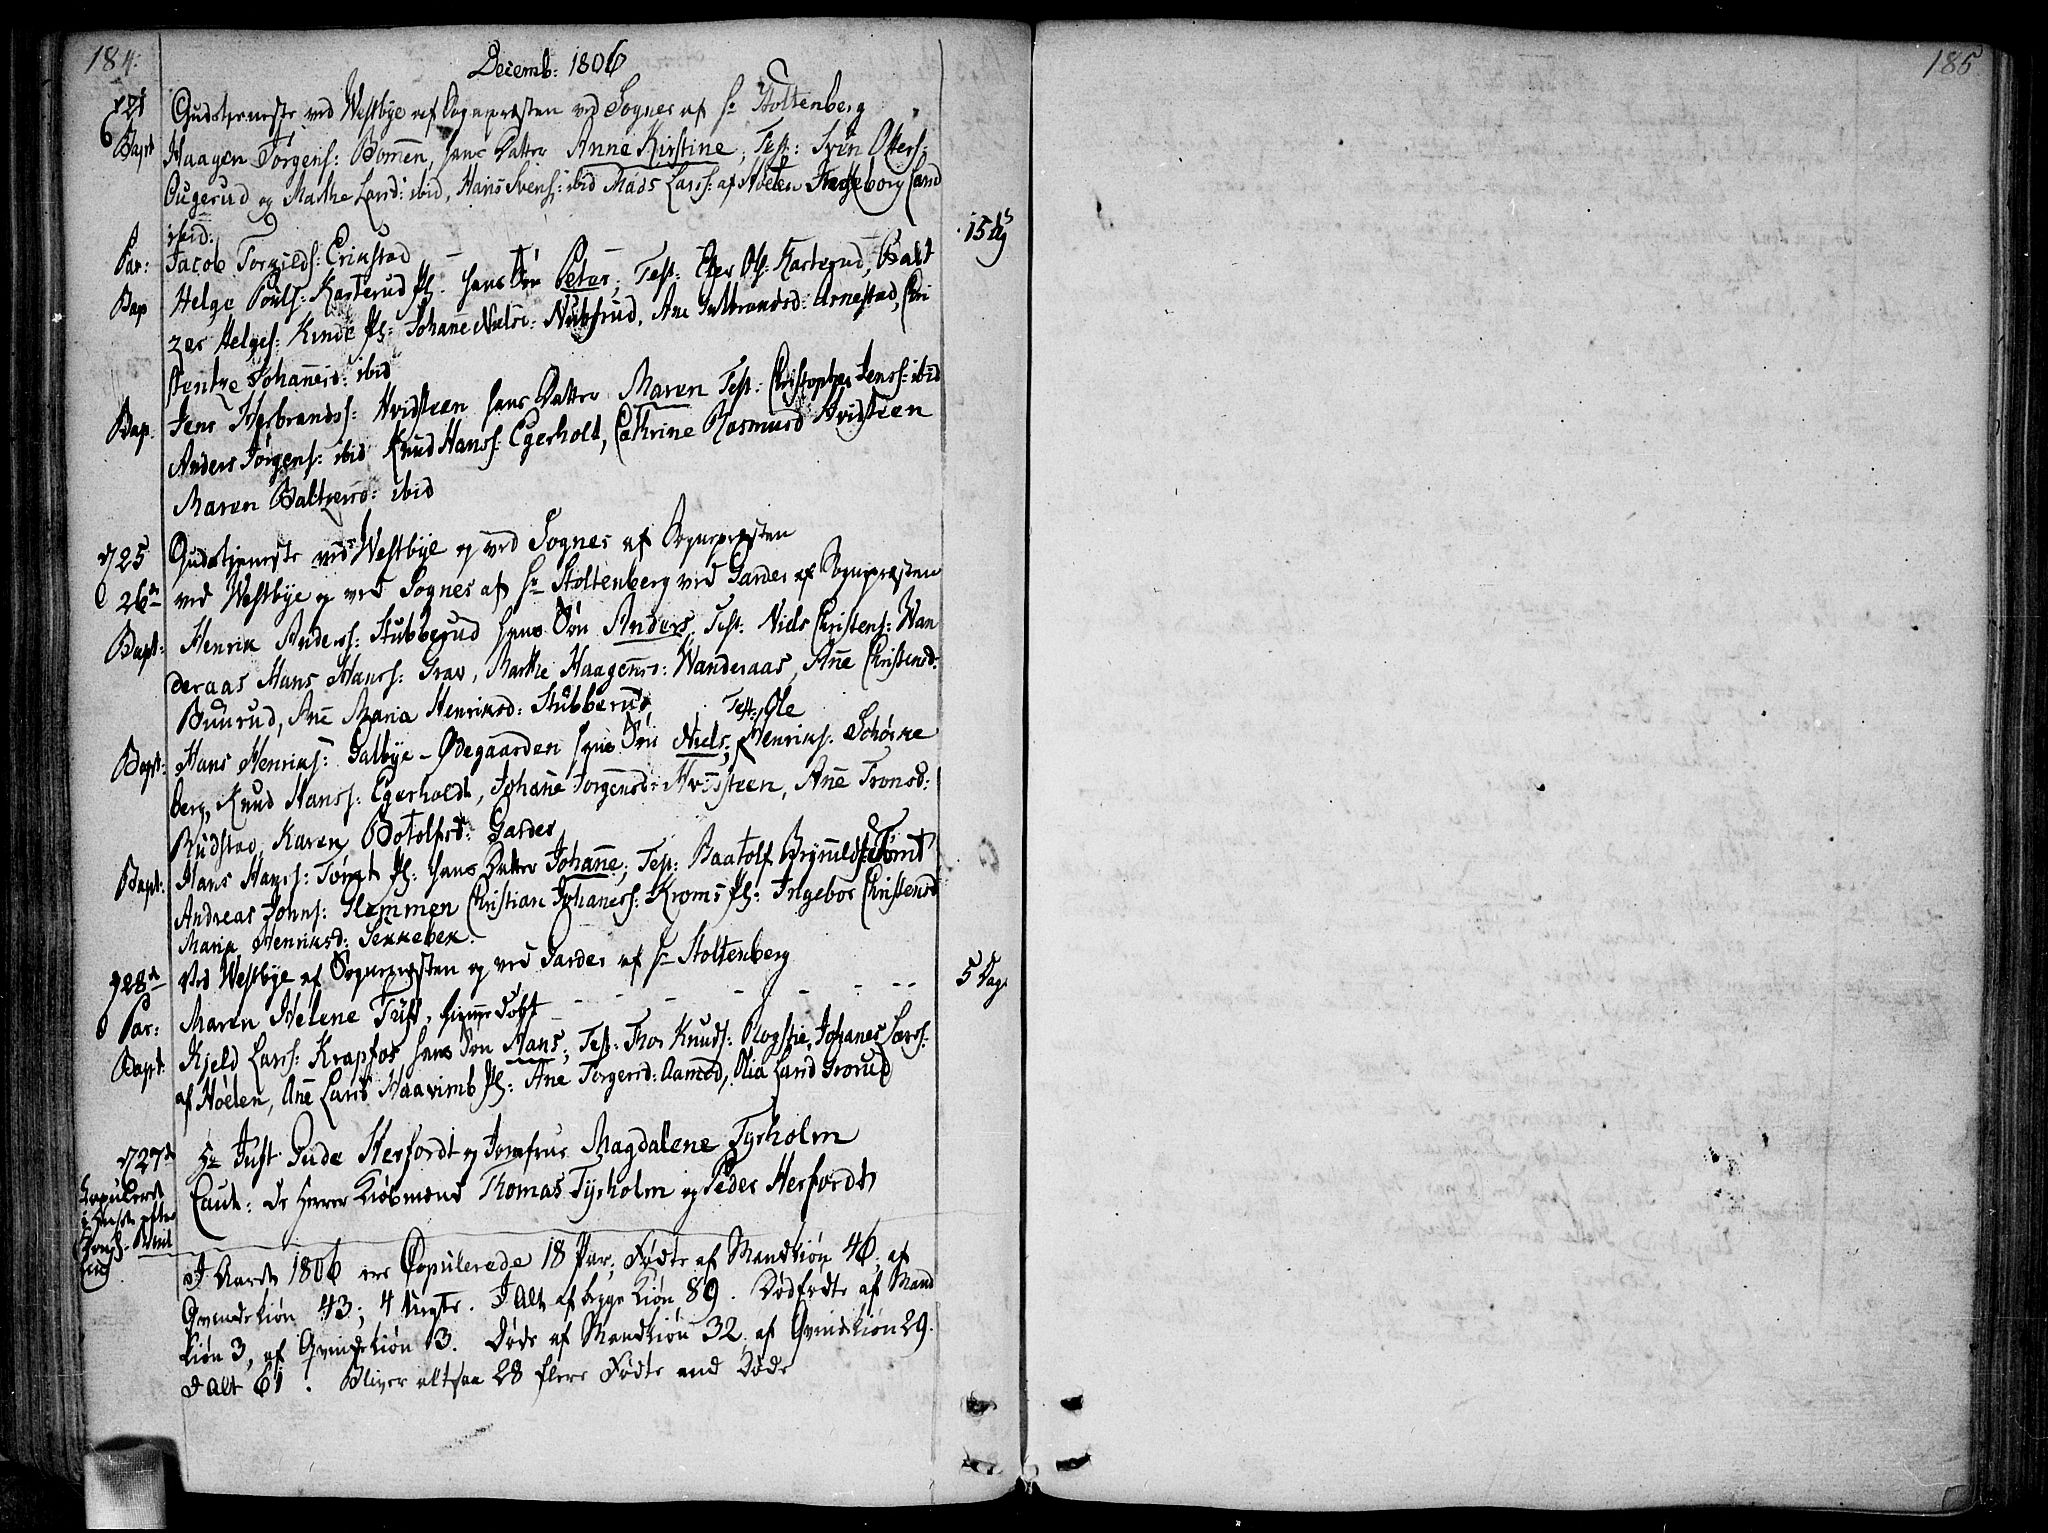 184.
Decemb: 1806
d 21 Gudstieneste ved Westbye af Sognepræsten ved Sogner af Hr Stoltenberg
Bapt Haagen Jørgens: Bommen, hans Datter Anne Kirstine; Test: Svin Oters:
Cugerud og Marthe Larsd: ibid, Hans Svens: ibid Mads Larss: af Høelen Ingeborg Larsd
ibid.
Par: Jacob Torgilds: Erikstad 15 Dg
Bap Helge Pouls: Kasterud Pl: hans Søn Peter, Test: Ols: Kasterud, Balt
zer Helges: Kinde Pl: Johanne Niels: Nubserud, Ane Gulbrandsd: Arnestad, Chri
stentze Johannesd: ibid
Bap Jens Herbrands: Hvidsteen hans Datter Maren Test: Christopher Jenss: ibid
Anders Jørgens: ibid Knud Hanss: Egerholt, Cathrine Rasmusd Hvidsteen
Maren Baltzersd: ibid
d 25 Gudstieneste ved Westbye og ved Sogner af Sognepræsten
26de ved Westbye og ved Sogner af Hr Stoltenberg ved Garder af Sognepræsten
Bapt: Henrik Anderss: Stubberud hans Søn Anders, Test: Niels Christens: Wan
deraas Hans Hanss: Grav, Marthe Haagensd: Wanderaas, Ane Christensd:
Buurud, Ane Maria Henriksd: Stubberud
Test: Ole
Bapt: Hans Henriks: Galbye-Ødegaarden hans Søn Niels, Henriks: Schøike
berg, Knud Hanss: Egerholdt, Johane Jorgensd: Hvidsteen, Ane Tronsd:
Rudstad, Karen Botolfsd: Garder
Bapt: Hans Hanss: Tømt Pl: hans Datter Johanne; Test: Baatolf Brynilds: Tømt
Andreas Johns: Slemmen Christian Johaness: Kroms Pl: Ingebor Christensd
Maria Henriksd: Sekkebek.
d 28de Ved Westbye af Sognepræsten og ved Garder af Hr Stoltenberg
Par: Maren Helene Tuft, hjemme Døbt 5 Dag
Bapt. Kield Larss: Krapfos hans Søn Hans, Test: Thor Knuds: Rogstie, Johanes Larss:
af Høelen, Ane Larsd Haavimb Pl: Ane Torgersd: Aamod, Olia Larsd Grorud
d 27de Hr Just Gude Herfordt og Jomfrue Magdalene Tyrholm
Copuleret
i Huset efter
Kongl. Bevil
ling
Caut: De Herrer Kiøbmænd Thomas Tyrholm og Peder Herfordt
I Aaret 1806 ere Copulerede 18 Par; Fødte af Mandkiøn 46. af
Qvindekiøn 43; 4 Uægte. I Alt af begge Kiøn 89. Dødfødte af Mand
kiøn 3, af Qvindekiøn 3. Døde af Mandkiøn 32. af Qvindekiøn 29.
I Alt 61. Bliver altsaa 28 flere Fødte end Døde
185